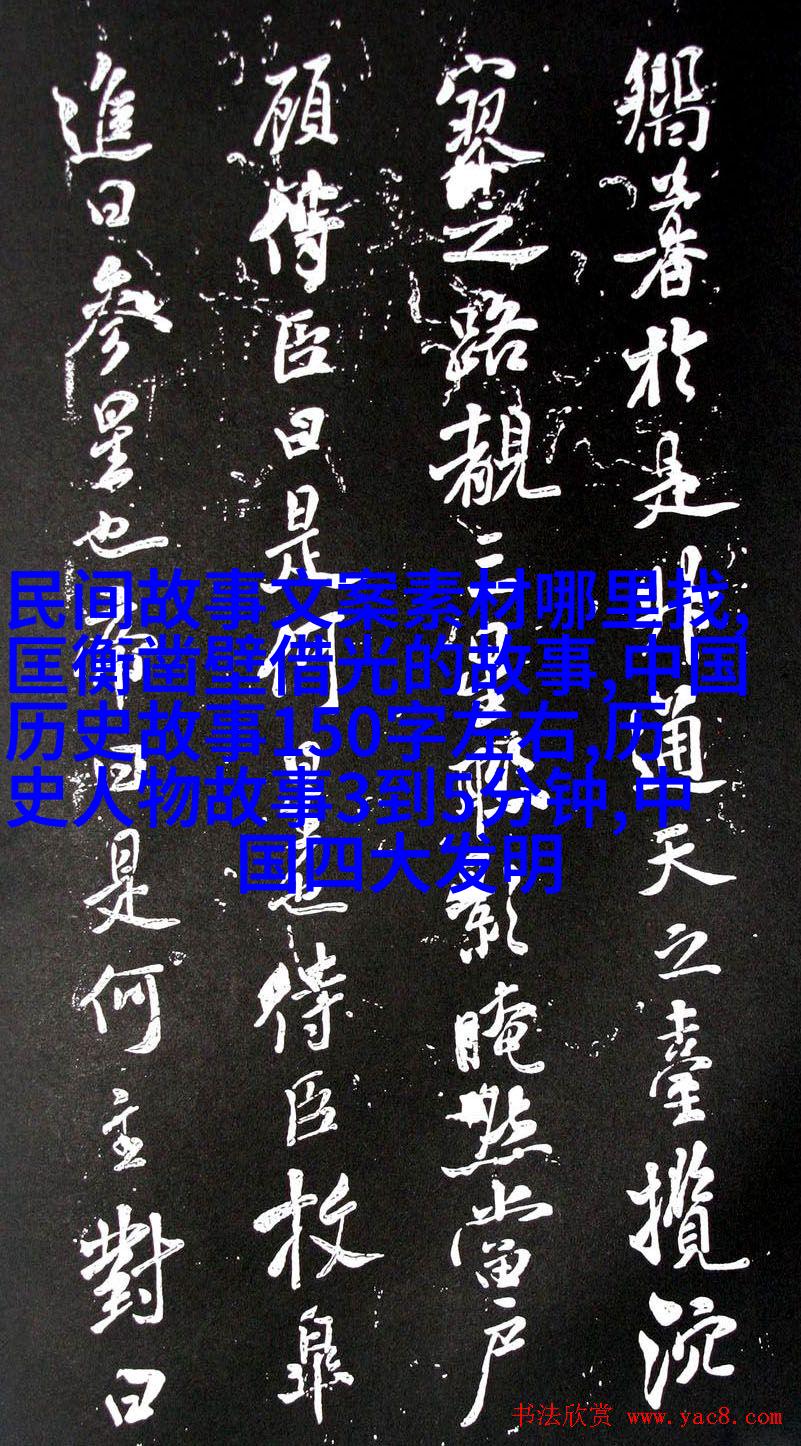 於是升通天之臺攬沆
寥之路覩三星聯影晻然當戶
顧侍臣曰是何星也侍臣枚皋
進曰參星也帝曰是何主對曰
民间故事文案素材哪里找,
匡衡凿壁借光的故事,中国
历史故事150字左右,历
史人物故事3到5分钟,中
国四大发明
书法欣赏 www.yac8.com